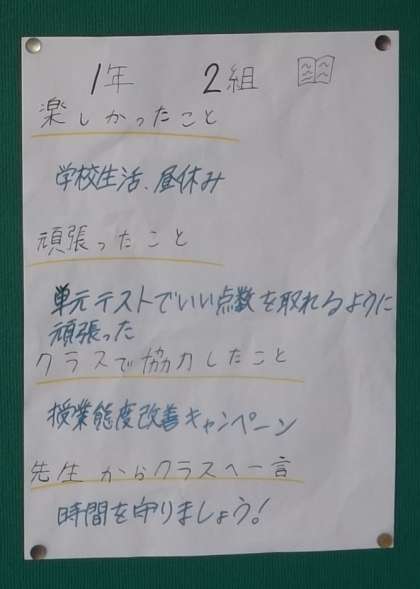 1年 2組
楽しかったこと
学校生活、昼休み
頑張ったこと
単元テストでいい点数を取れるように
頑張った
クラスで協力したこと
授業態度改善キャンペーン
先生からクラスへ一言
時間を守りましょう!